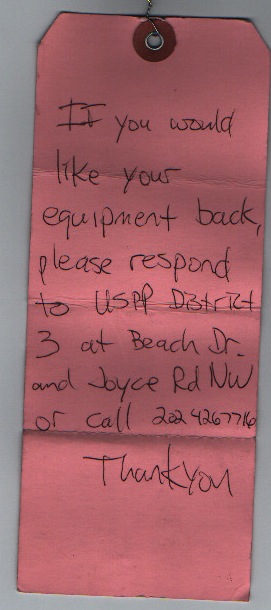 If you would
like your
equipment back,
please respond
to USPP District
3 at Beach Dr.
and Joyce Rd NW
or call 202 4267716
Thank you